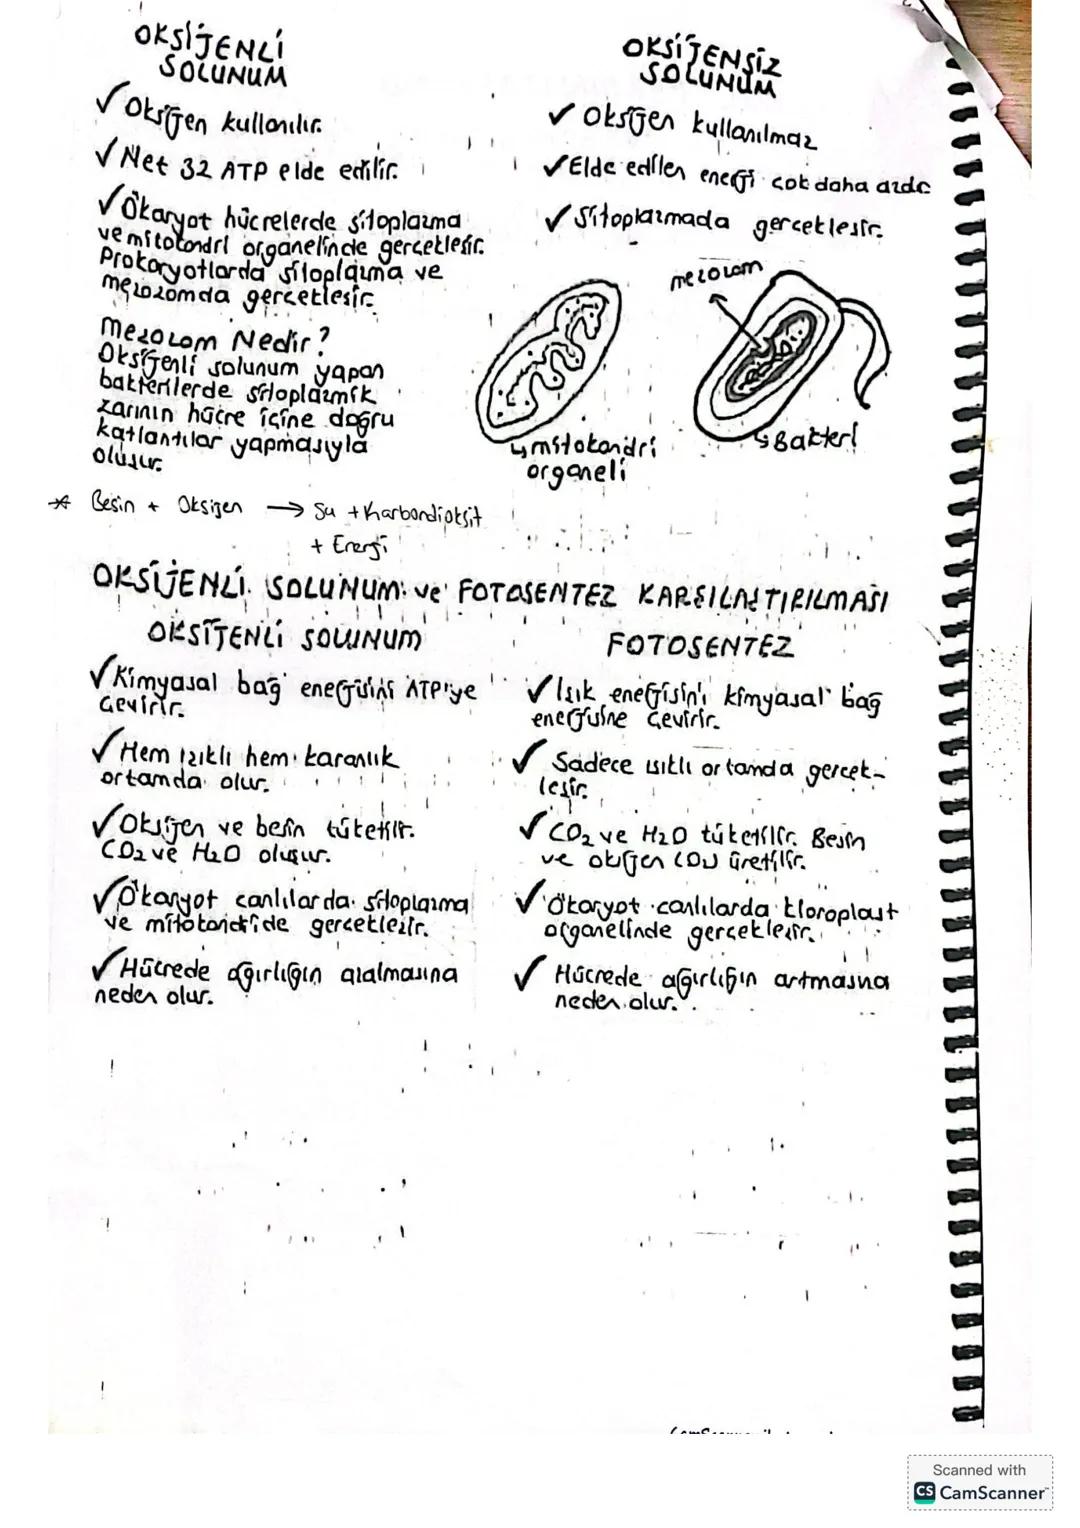 OKSİJENLİ
SOLUNUM
✓ Oksijen kullanılır.
✓ Net 32 ATP elde edilir.
✓ Ökaryot hücrelerde sitoplazma
ve mitokondri organelinde gerçekleşir.
Prokaryotlarda sitoplazma ve
mezozomda gerçekleşir.
Mezozom Nedir?
Oksijenli solunum yapan
bakterilerde sitoplazmik
zarının hücre içine doğru
katlantılar yapmasıyla
oluşur.
OKSİJENSİZ
SOLUNUM
✓ Oksijen kullanılmaz
✓ Elde edilen enerji çok daha azdır
✓ Sitoplazmada gerçekleşir.
mezozom
↳ mitokondri
organeli
↳ Bakteri
* Besin + Oksijen → Su + Karbondioksit
+ Enerji
OKSİJENLİ SOLUNUM ve FOTOSENTEZ KARŞILAŞTIRILMASI
OKSİJENLİ SOLUNUM
✓ Kimyasal bağ enerjisini ATP'ye
çevirir.
✓ Hem ışıklı hem karanlık
ortamda olur.
✓ Oksijen ve besin tüketilir.
CO2 ve H2O oluşur.
✓ Ökaryot canlılarda sitoplazma
ve mitokondride gerçekleşir.
✓ Hücrede ağırlığın azalmasına
neden olur.
FOTOSENTEZ
✓ Işık enerjisini kimyasal bağ
enerjisine çevirir.
✓ Sadece ışıklı ortamda gerçek-
leşir.
✓ CO2 ve H2O tüketilir. Besin
ve oksijen üretilir.
✓ Ökaryot canlılarda kloroplast
organelinde gerçekleşir.
✓ Hücrede ağırlığın artmasına
neden olur.
Scanned with
CS CamScanner